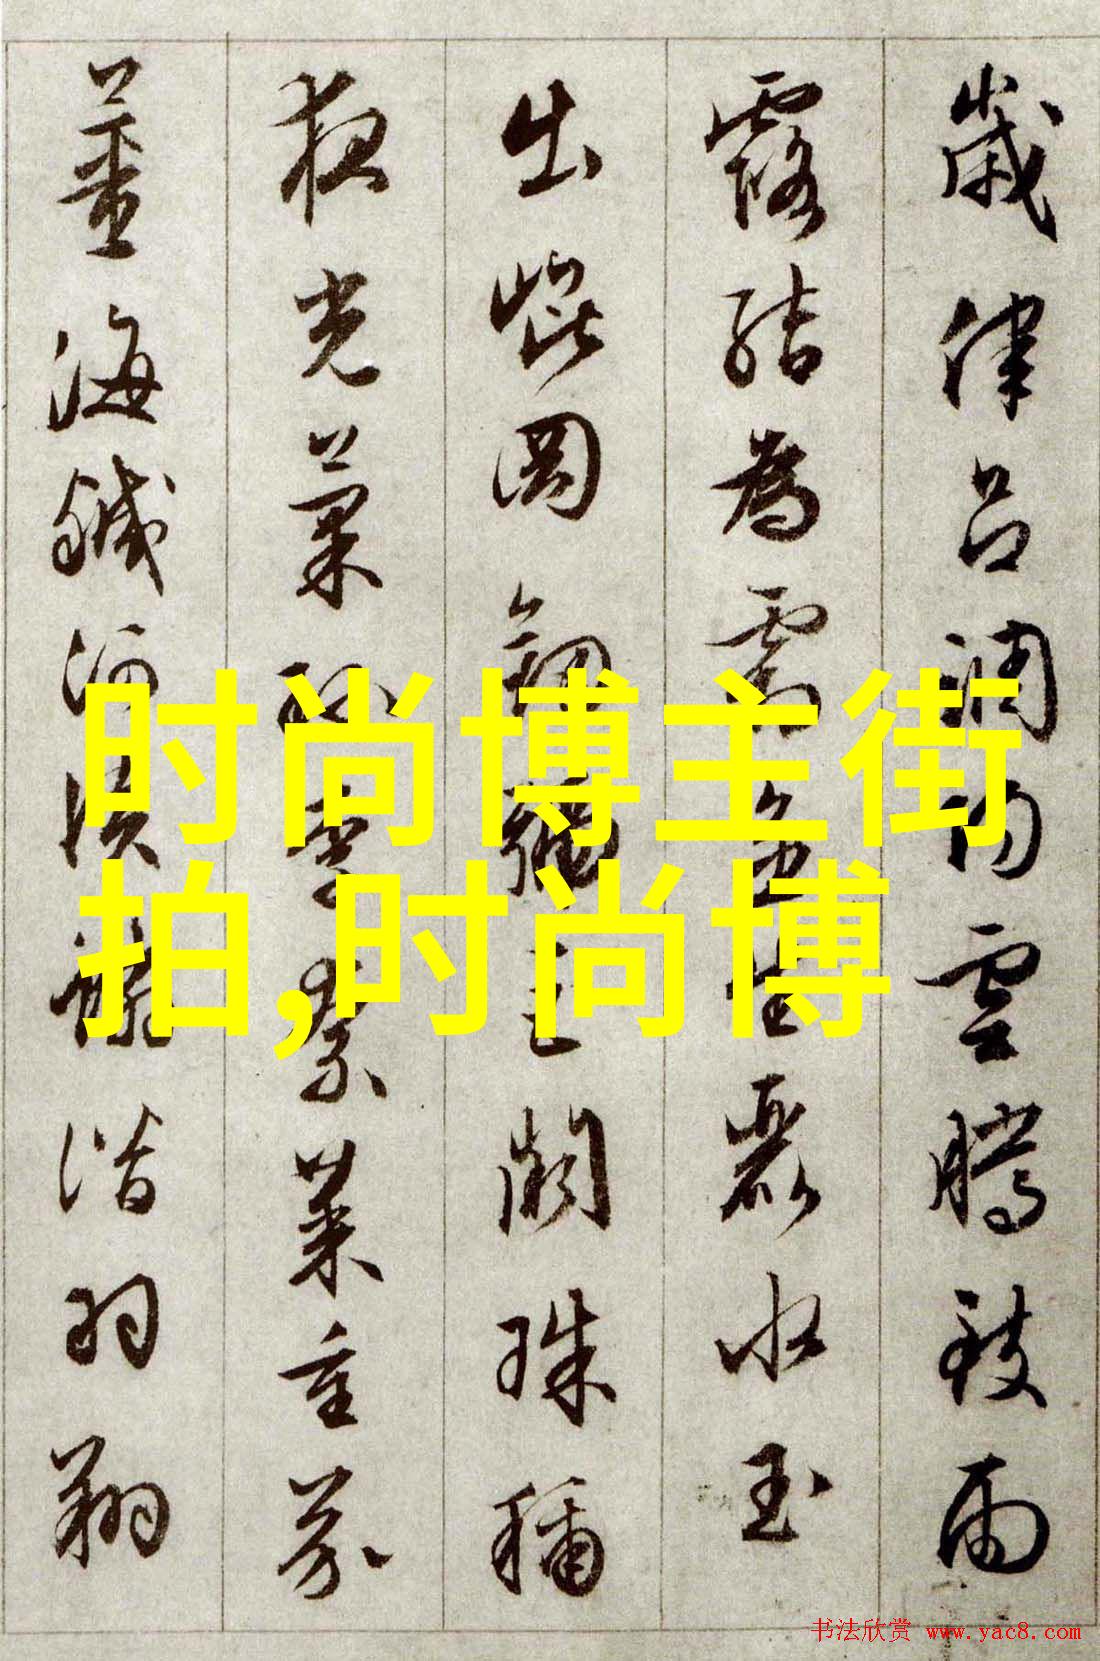 歲律呂調陽雲騰致雨
露結為霜金生麗水玉
出崐岡劒號巨闕珠稱
夜光菓珍李柰菜重芥
薑海鹹河淡鱗潛羽翔
时尚博主街
拍,时尚博
书法欣赏 www.yac8.com